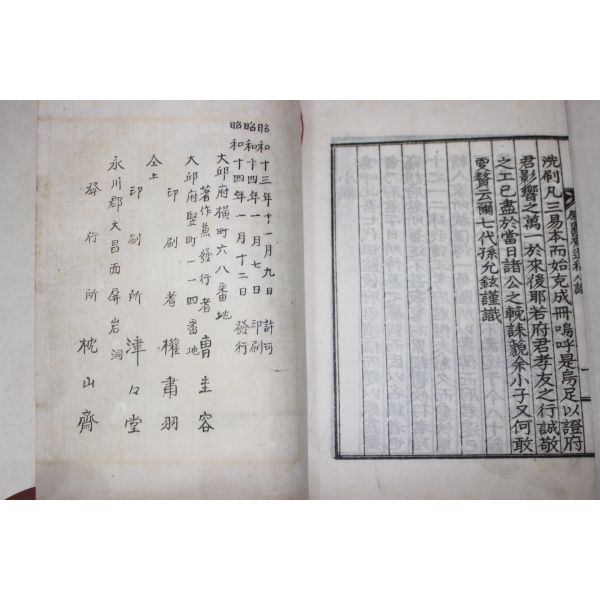 洗刷凡三易本而始克成冊嗚呼是烏足以證府
君影響之萬一於來後耶若府君孝友之行誠敬
之工已盡於當日諸公之輓誄貌余小子又何敢
更贅云爾七代孫允鉉謹識
昭和十三年十一月九日 許可
昭和十四年一月七日 印刷
昭和十四年一月十二日 發行
大邱府橫町六八番地
著作兼發行者 曺圭容
大邱府竪町一一四番地
印刷者 權肅羽
仝上
印刷所 津々堂
永川郡大昌面屏岩洞
發行所 枕山齋